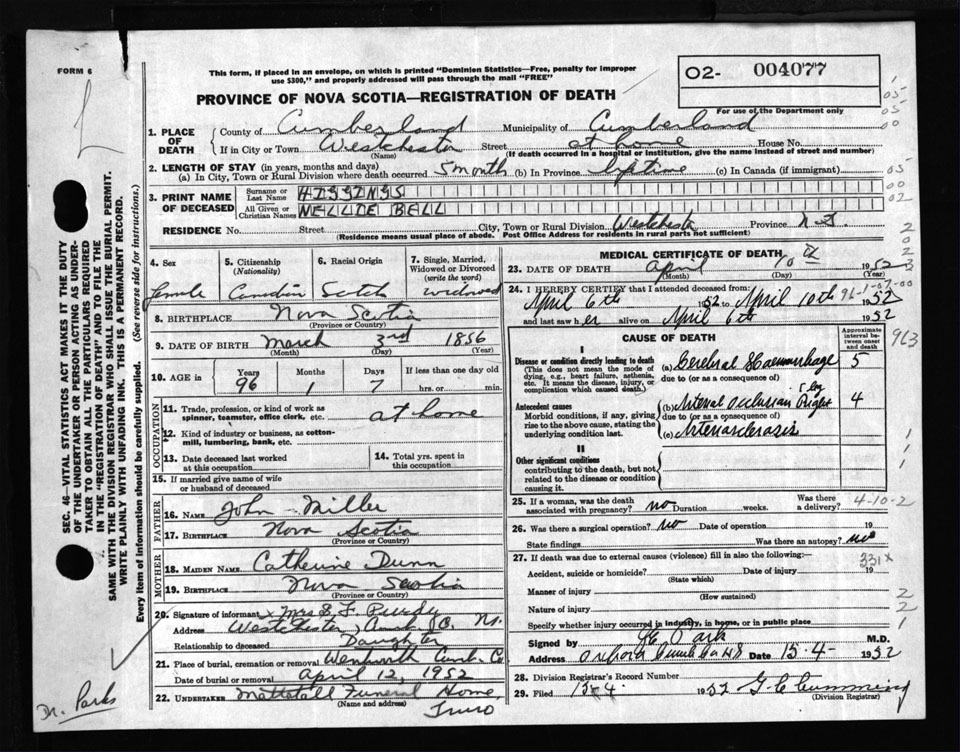 FORM 6
This form, if placed in an envelope, on which is printed "Dominion Statistics—Free, penalty for improper
use $300," and properly addressed will pass through the mail "FREE"
PROVINCE OF NOVA SCOTIA—REGISTRATION OF DEATH
O2- 004077
For use of the Department only
1. PLACE OF DEATH
County of Cumberland Municipality of Cumberland
If in City or Town Westchester Street at home House No.
(Name) (If death occurred in a hospital or institution, give the name instead of street and number)
2. LENGTH OF STAY (in years, months and days)
(a) In City, Town or Rural Division where death occurred 5 month (b) In Province lifetime (c) In Canada (if immigrant)
3. PRINT NAME OF DECEASED
Surname or Last Name HIGGINGS
All Given or Christian Names NELLIE BELL
RESIDENCE No. Street City, Town or Rural Division Westchester Province N.S.
(Residence means usual place of abode. Post Office Address for residents in rural parts not sufficient)
4. Sex
female
5. Citizenship
(Nationality)
Canadian
6. Racial Origin
Scotch
7. Single, Married, Widowed or Divorced
(write the word)
widowed
8. BIRTHPLACE Nova Scotia
(Province or Country)
9. DATE OF BIRTH March 3rd 1856
(Month) (Day) (Year)
10. AGE in Years Months Days If less than one day old
96 1 7 hrs. or min.
OCCUPATION
11. Trade, profession, or kind of work as
spinner, teamster, office clerk, etc. at home
12. Kind of industry or business, as cotton-
mill, lumbering, bank, etc.
13. Date deceased last worked
at this occupation
14. Total yrs. spent in
this occupation
15. If married give name of wife
or husband of deceased
FATHER
16. NAME John Miller
17. BIRTHPLACE Nova Scotia
(Province or Country)
MOTHER
18. MAIDEN NAME Catherine Dunn
19. BIRTHPLACE Nova Scotia
(Province or Country)
20. Signature of informant x Mrs S. F. Purdy
Address Westchester, Cumb. Co. N.S.
Relationship to deceased Daughter
21. Place of burial, cremation or removal Wentworth Cumb. Co
Date of burial or removal April 12, 1952
22. UNDERTAKER Mattatall Funeral Home,
(Name and address) Truro
MEDICAL CERTIFICATE OF DEATH
23. DATE OF DEATH April 10 th 1952
(Month) (Day) (Year)
24. I HEREBY CERTIFY that I attended deceased from:
April 6th 1952 to April 10th 1952
and last saw her alive on April 6th 1952
CAUSE OF DEATH
Approximate interval between onset and death
I
Disease or condition directly leading to death
(This does not mean the mode of
dying, e.g., heart failure, asthenia,
etc. It means the disease, injury, or
complication which caused death.)
(a) Cerebral Haemorrhage 5
due to (or as a consequence of)
Antecedent causes
Morbid conditions, if any, giving
rise to the above cause, stating the
underlying condition last.
(b) Arterial Occlusion Right leg 4
due to (or as a consequence of)
(c) Arteriosclerosis
II
Other significant conditions
contributing to the death, but not
related to the disease or condition
causing it.
25. If a woman, was the death
associated with pregnancy? no Duration weeks. Was there
a delivery?
26. Was there a surgical operation? no Date of operation 19
State findings Was there an autopsy? no
27. If death was due to external causes (violence) fill in also the following:—
Accident, suicide or homicide? Date of injury 19
(State which)
Manner of injury
(How sustained)
Nature of injury
Specify whether injury occurred in industry, in home, or in public place
Signed by M.D.
Address Oxford Cumb Co NS Date 15-4- 1952
28. Division Registrar's Record Number
29. Filed 15-4 1952 G. C. Cumming
(Division Registrar)
SEC. 46—VITAL STATISTICS ACT MAKES IT THE DUTY
OF THE UNDERTAKER OR PERSON ACTING AS UNDER-
TAKER TO OBTAIN ALL THE PARTICULARS REQUIRED
IN THE "REGISTRATION OF DEATH" AND TO FILE THE
SAME WITH THE DIVISION REGISTRAR WHO SHALL ISSUE THE BURIAL PERMIT.
WRITE PLAINLY WITH UNFADING INK. THIS IS A PERMANENT RECORD.
Every item of information should be carefully supplied. (See reverse side for instructions.)
Dr. Parks
05
05
00
05
00
02
96-1-07-00
963
4-10-2
331x